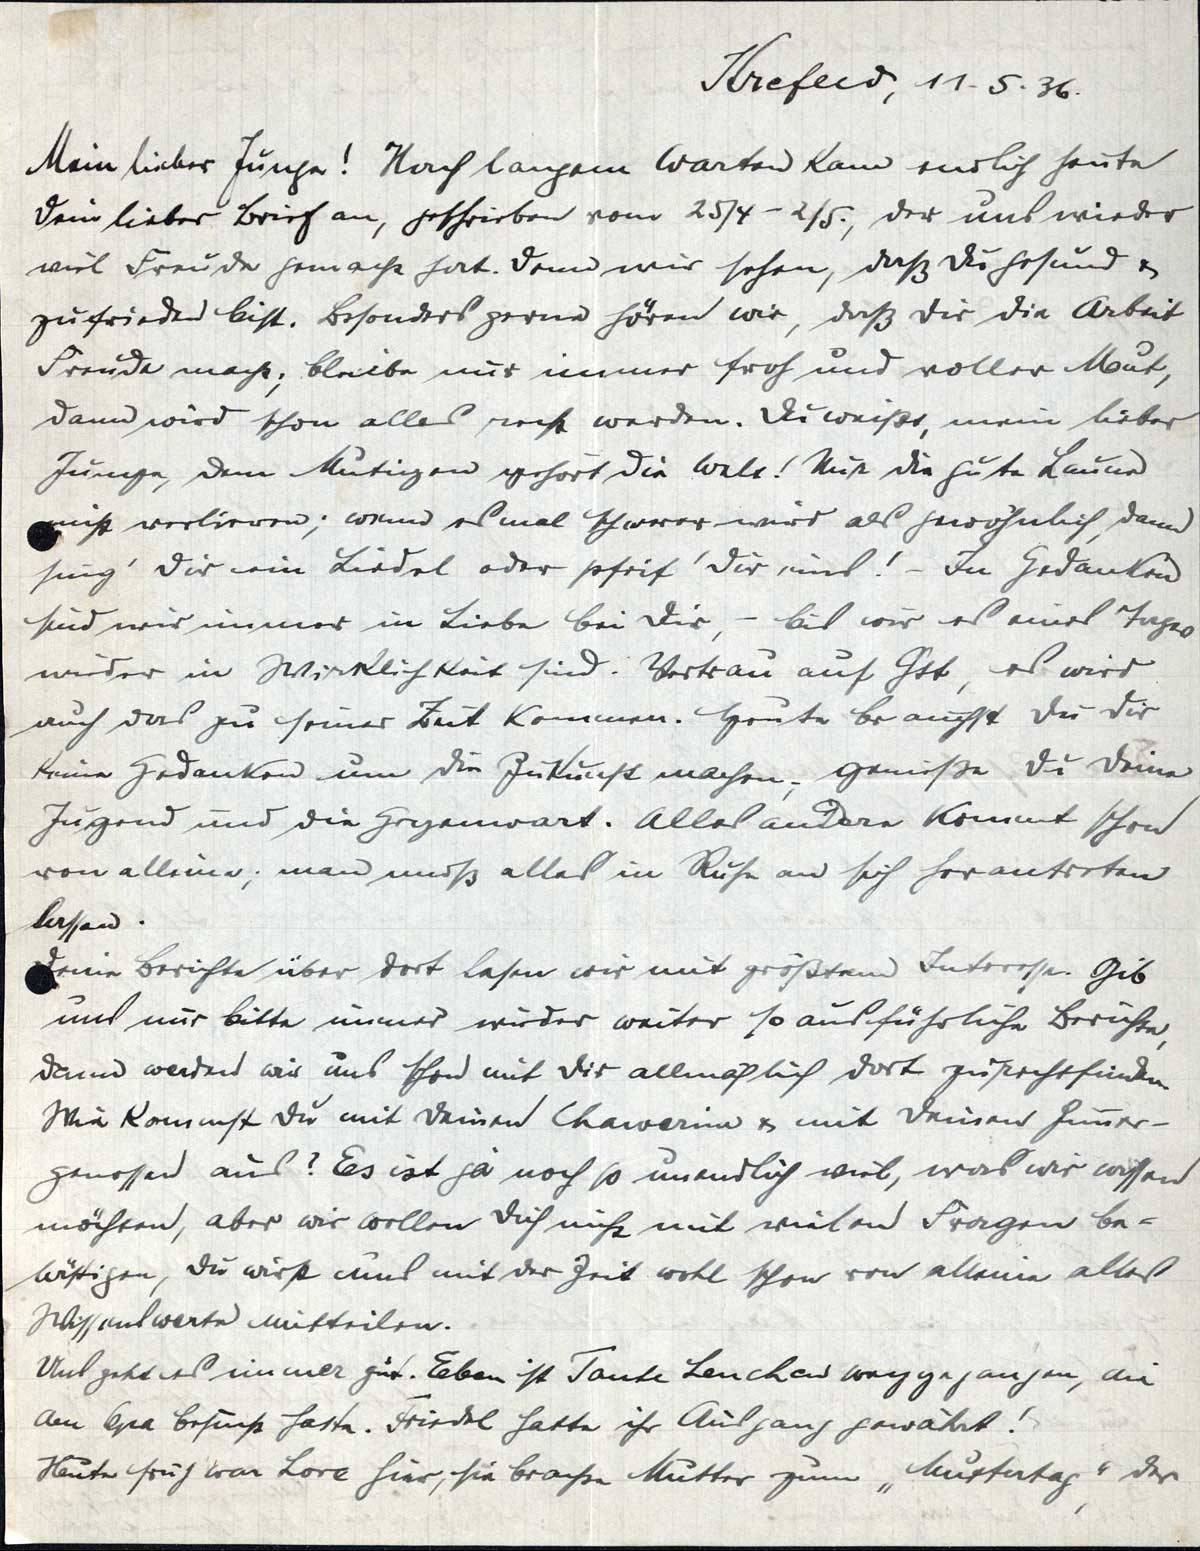 Krefeld, 11.5.36.
Mein lieber Junge! Nach langem Warten kam endlich heute
Dein lieber Brief an, geschrieben vom 25/4 - 2/5., der uns wieder
viel Freude gemacht hat. Denn wir sehen, daß Du gesund &
zufrieden bist. Besonders gerne hören wir, daß Dir die Arbeit
Freude macht; bleibe nur immer froh und voller Mut,
dann wird schon alles recht werden. Du weißt, mein lieber
Junge, dem Mutigen gehört die Welt! Nur die gute Laune
nicht verlieren; wenn es mal schwerer wird als gewöhnlich, dann
sing' Dir ein Liedel oder pfeif' Dir eins! - In Gedanken
sind wir immer in Liebe bei Dir, - bis wir es eines Tages
wieder in Wirklichkeit sind. Vertrau auf Gtt, es wird
auch das zu seiner Zeit kommen. Heute brauchst Du Dir
keine Gedanken um die Zukunft machen, genieße Du Deine
Jugend und die Gegenwart. Alles andere kommt schon
von alleine; man muß alles in Ruhe an sich herantreten
lassen.
Deine Berichte über dort lasen wir mit größtem Interesse. Gib
uns nur bitte immer wieder weiter so ausführliche Berichte,
dann werden wir uns schon mit Dir allmählich dort zurechtfinden.
Wie kommst Du mit Deinen Chawerim & mit Deinen Zimmer-
genossen aus? Es ist ja noch so unendlich viel, was wir wissen
möchten, aber wir wollen Dich nicht mit vielen Fragen be-
lästigen, Du wirst uns mit der Zeit wohl schon von alleine alles
Wissenswerte mitteilen.
Uns geht es immer gut. Eben ist Tante Lenchen weggegangen, die
den Opa besucht hatte. Friedel hatte ihr Ausgang gewährt!
Heute früh war Lore hier, sie brachte Mutter zum „Muttertag“, der